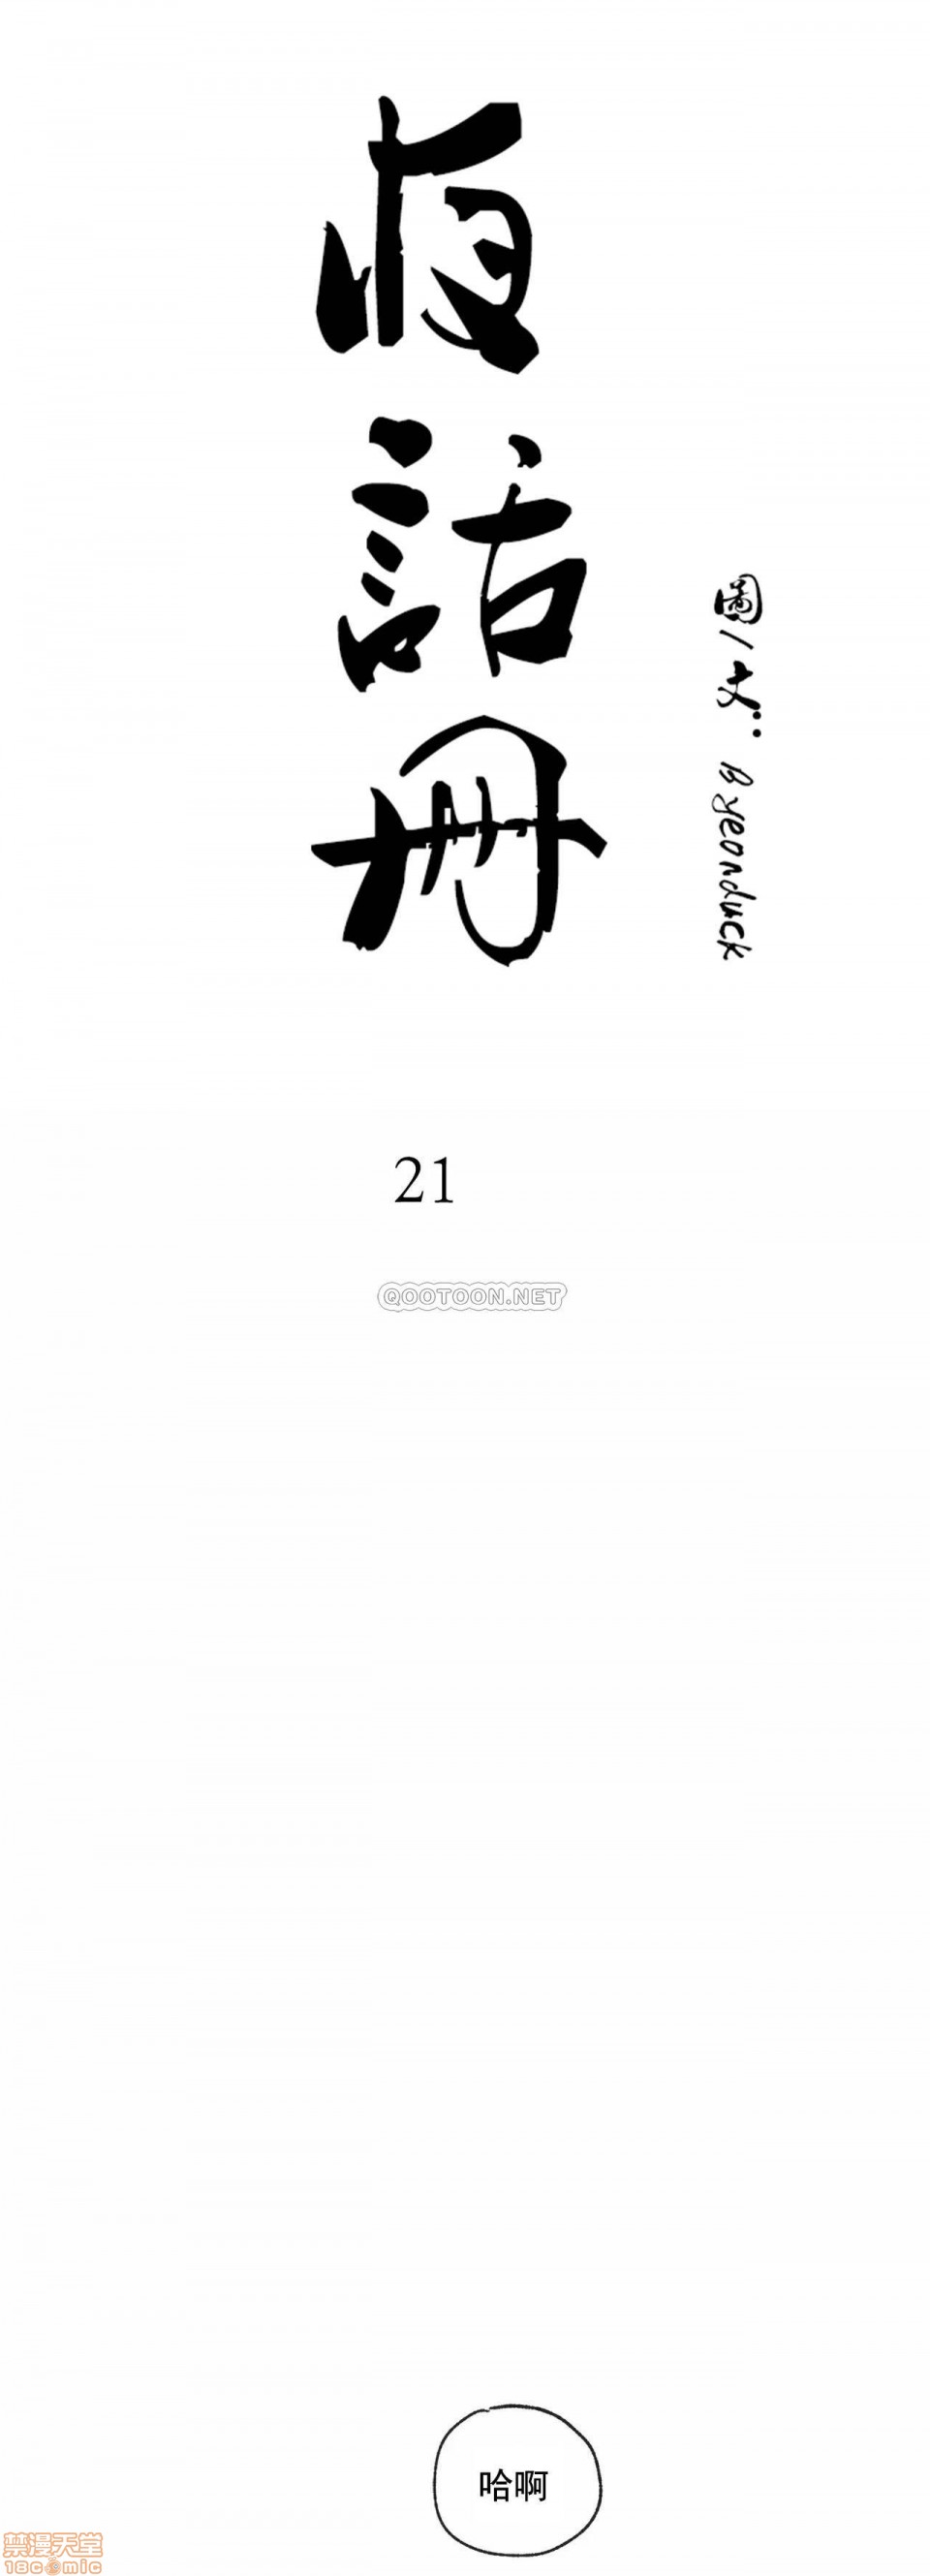 夜話冊
圖/文: Byeonduck
21
QOOTOON.NET
哈啊
禁漫天堂
18comic